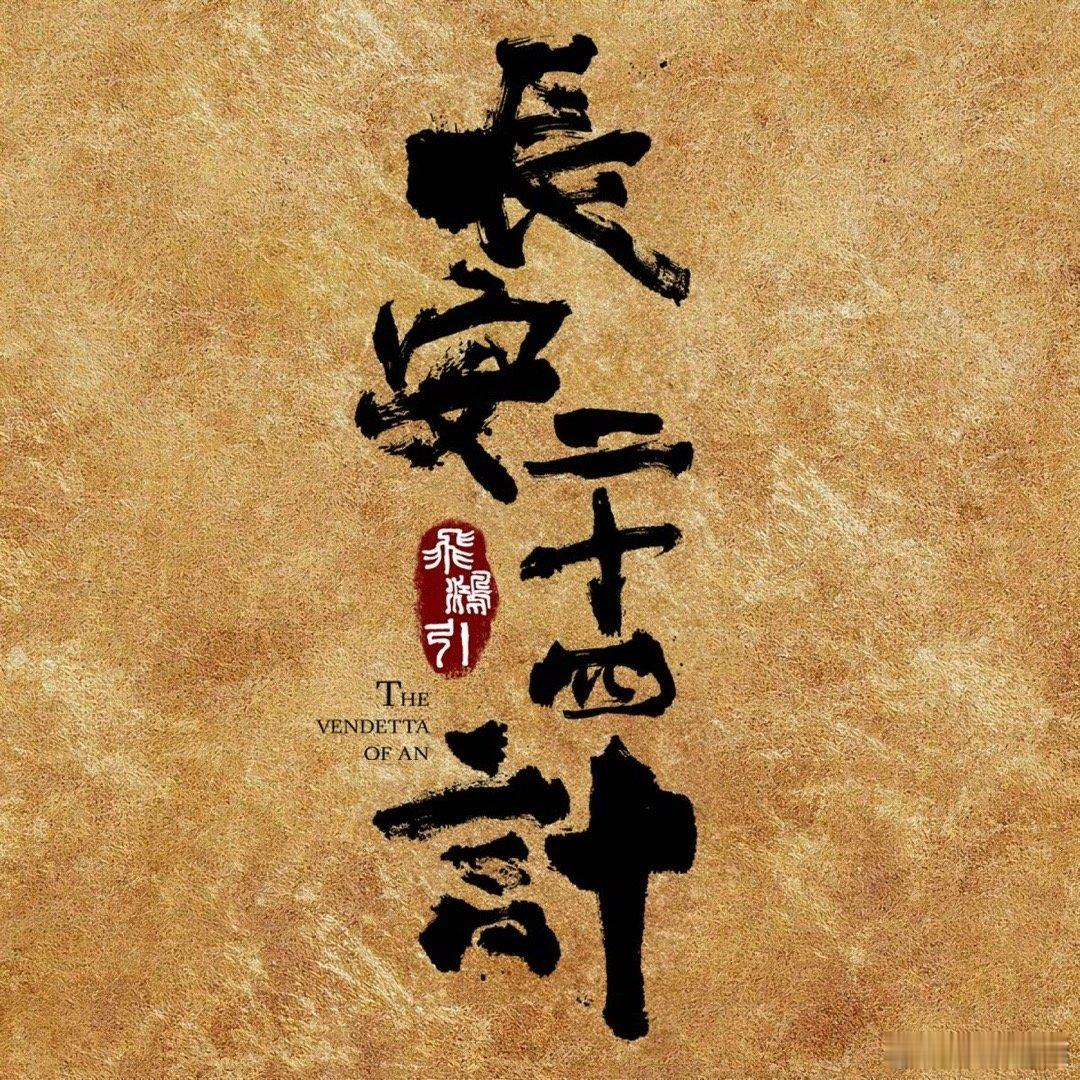 長安二十四計
飛鴻引
THE
VENDETTA
OF AN